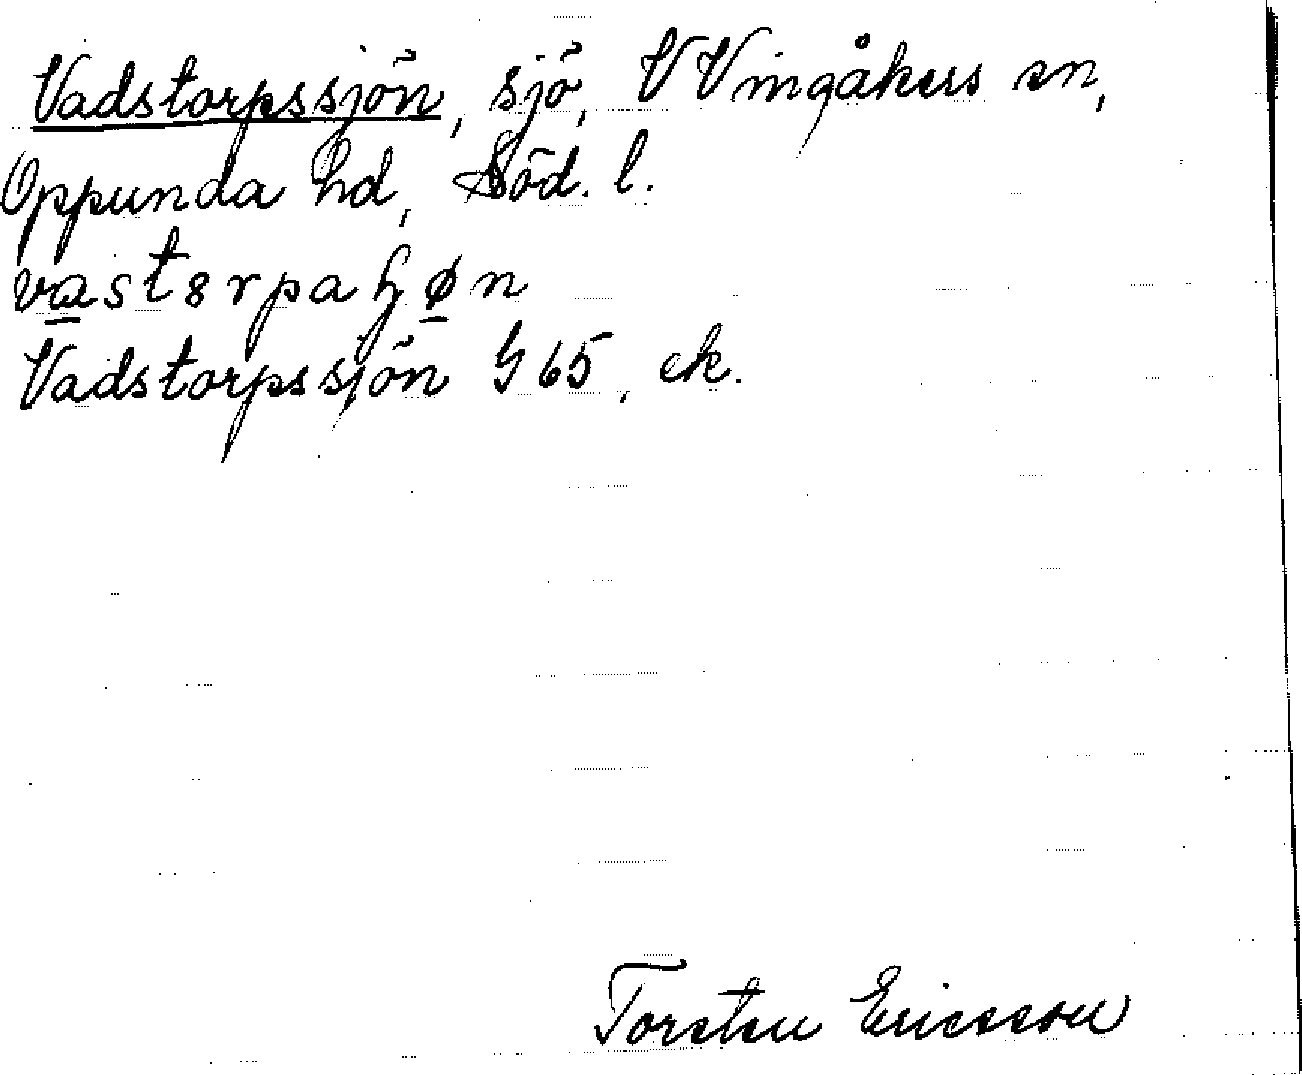 Vadstorpssjön, sjö, V Vingåkers sn,
Oppunda hd, Söd. l.
vast8rpaɧøn
Vadstorpssjön G 65, ek.
Torsten Ericsson